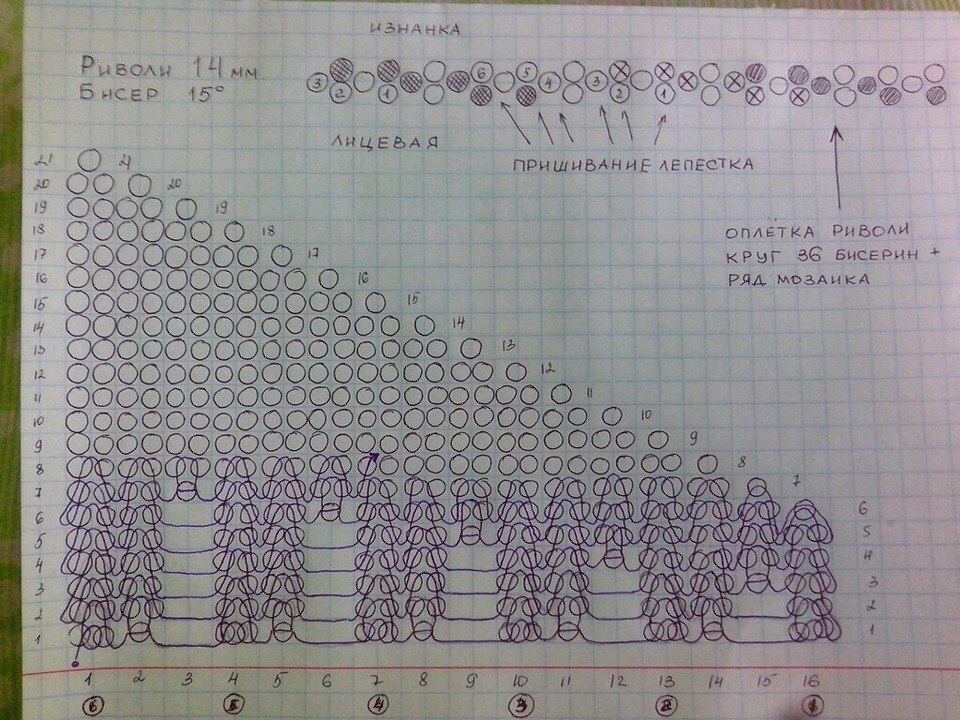 ИЗНАНКА
РИВОЛИ 14 мм.
БИСЕР 15°
3 2 1 6 5 4 3 2 1
ЛИЦЕВАЯ
ПРИШИВАНИЕ ЛЕПЕСТКА
ОПЛЁТКА РИВОЛИ
КРУГ 36 БИСЕРИН +
РЯД МОЗАИКА
21 21
20 20
19 19
18 18
17 17
16 16
15 15
14 14
13 13
12 12
11 11
10 10
9 9
8 8
7 7
6 6
5 5
4 4
3 3
2 2
1 1
1 2 3 4 5 6 7 8 9 10 11 12 13 14 15 16
6 5 4 3 2 1